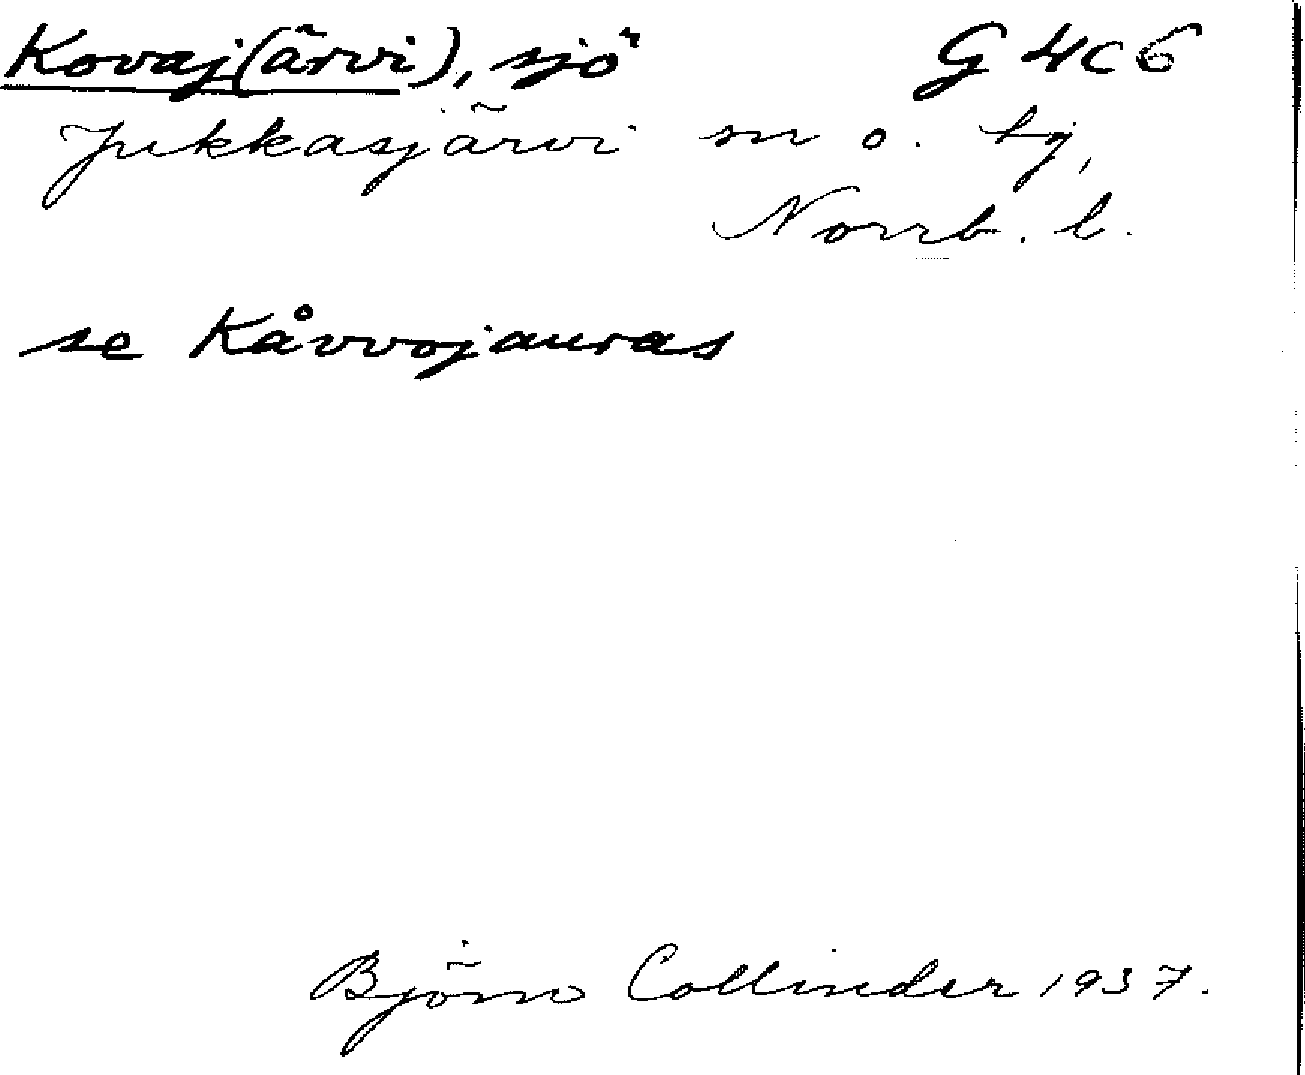 Kovaj(ärvi), sjö G 4c6
Jukkasjärvi sn o. tg,
Norrb. l.
se Kåvvojauras
Björn Collinder 1937.